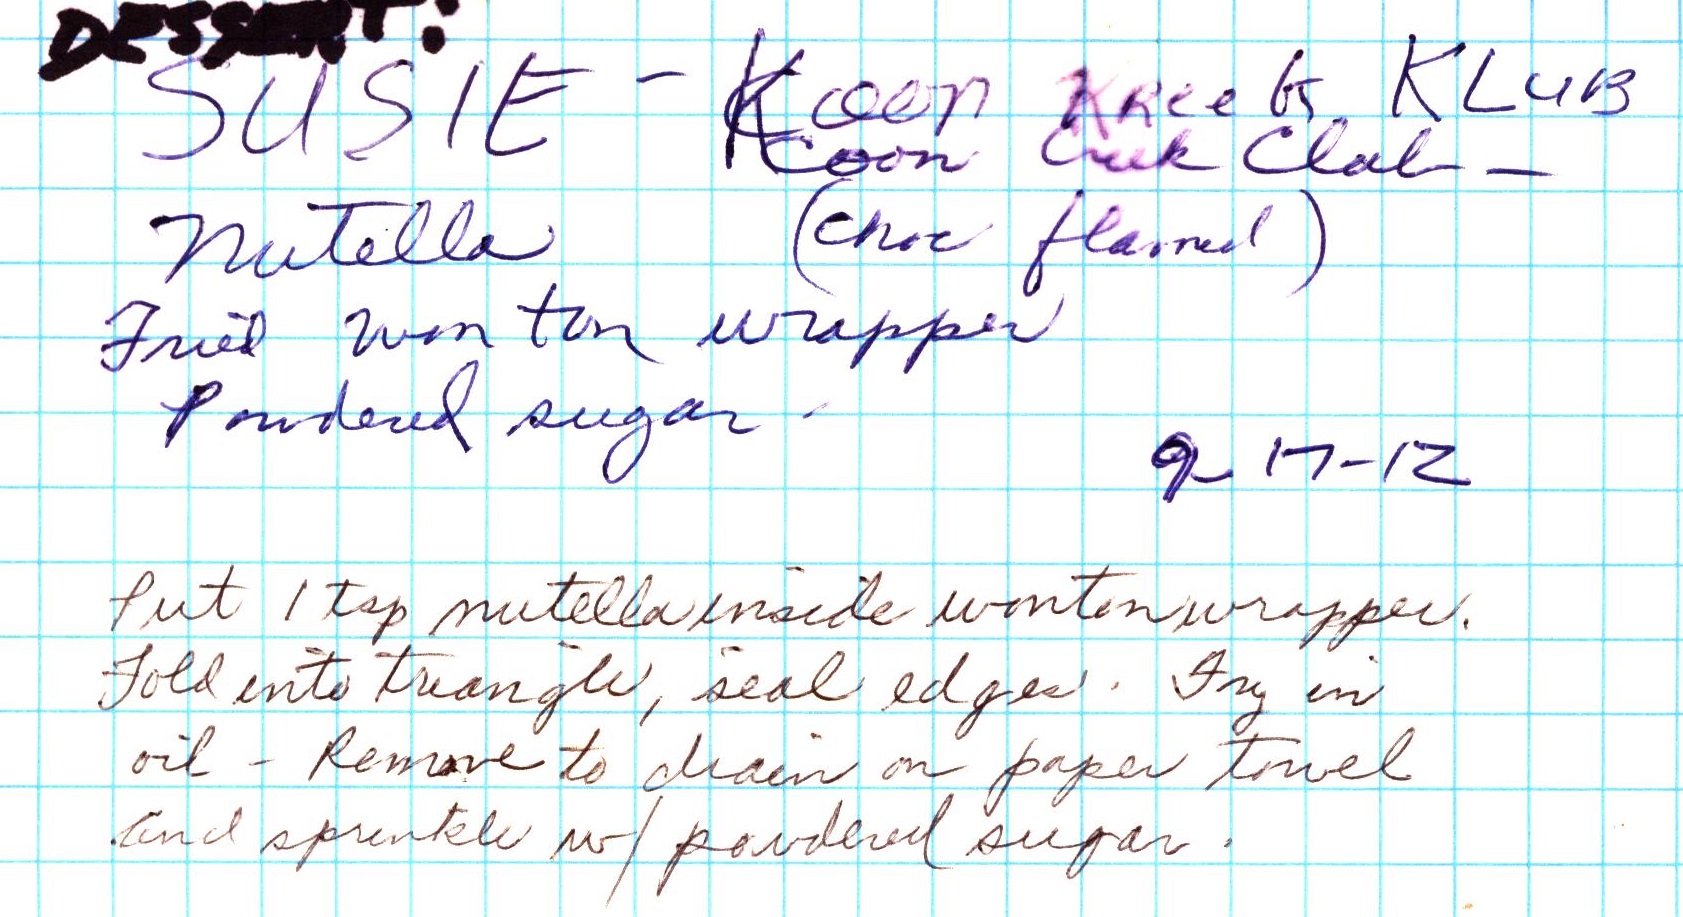 DESSERT:
SUSIE - Koon Kreek KLUB
Coon Creek Club -
Nutella (choc flavored)
Fried won ton wrapper
Powdered sugar -
9-17-12
Put 1 tsp nutella inside wonton wrapper.
Fold into triangle, seal edges. Fry in
oil - Remove to drain on paper towel
and sprinkle w/ powdered sugar.